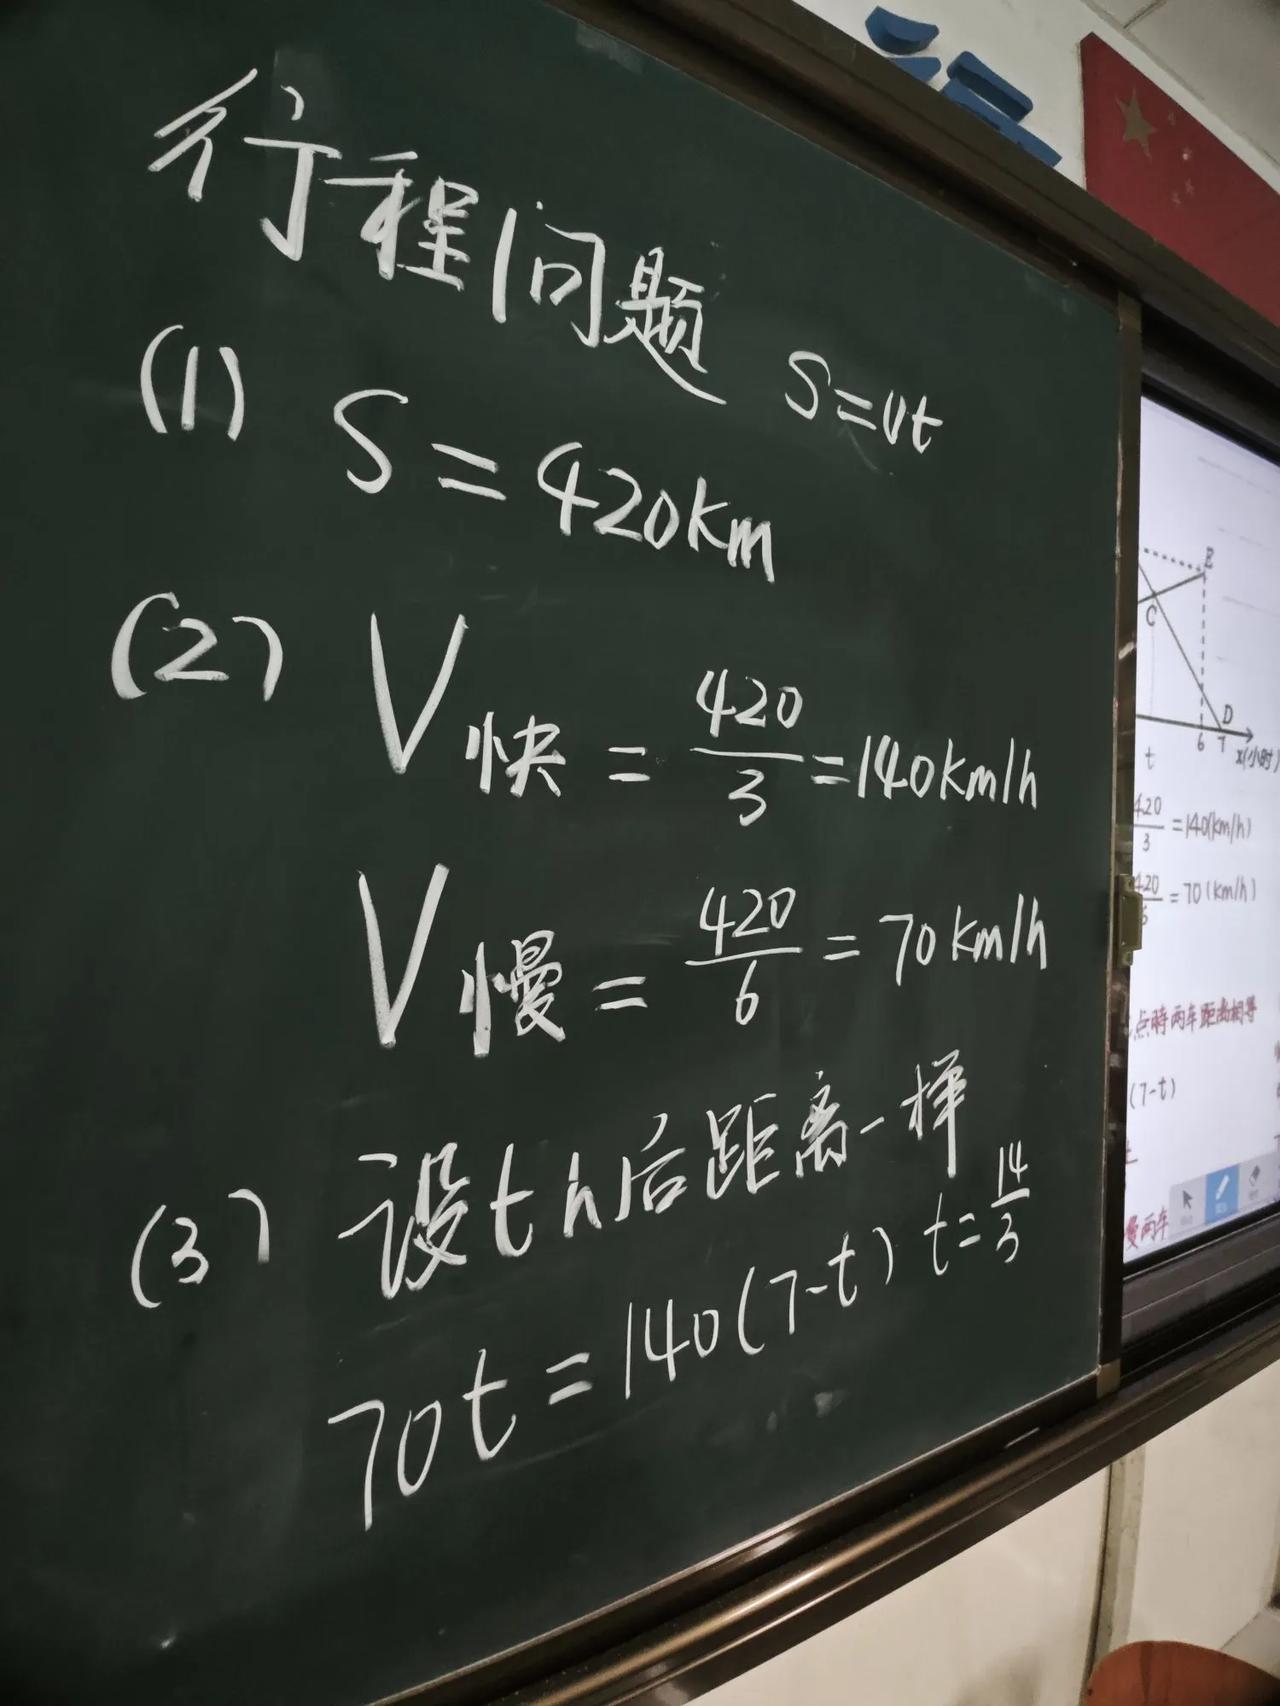 行程问题 S=vt
(1) S=420km
(2) V快 = 420/3 = 140km/h
V慢 = 420/6 = 70km/h
(3) 设t h后距离一样
70t = 140(7-t) t=14/3
E
C
D
t 6 7 x(小时)
420/3 =140(km/h)
420/6 =70(km/h)
点时两车距离相等
(7-t)
慢两车